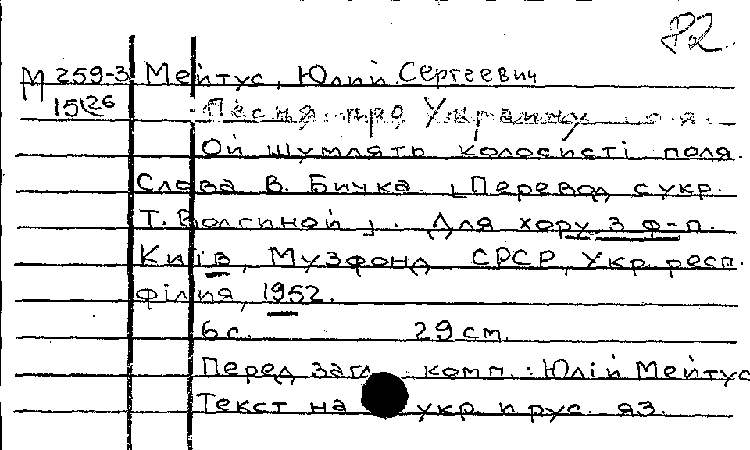 М 259-3 Мейтус, Юлий Сергеевич
15126
Песня про Украину
Ой шумлять колосисті поля.
Слова В. Бичка. [Перевод с укр.
Т. Волгиной]. Для хору з ф-п.
Київ, Музфонд СРСР, Укр. респ.
філія, 1952.
6 с. 29 см.
Перед загл. комп.: Юлій Мейтус
Текст на укр. и рус. яз.